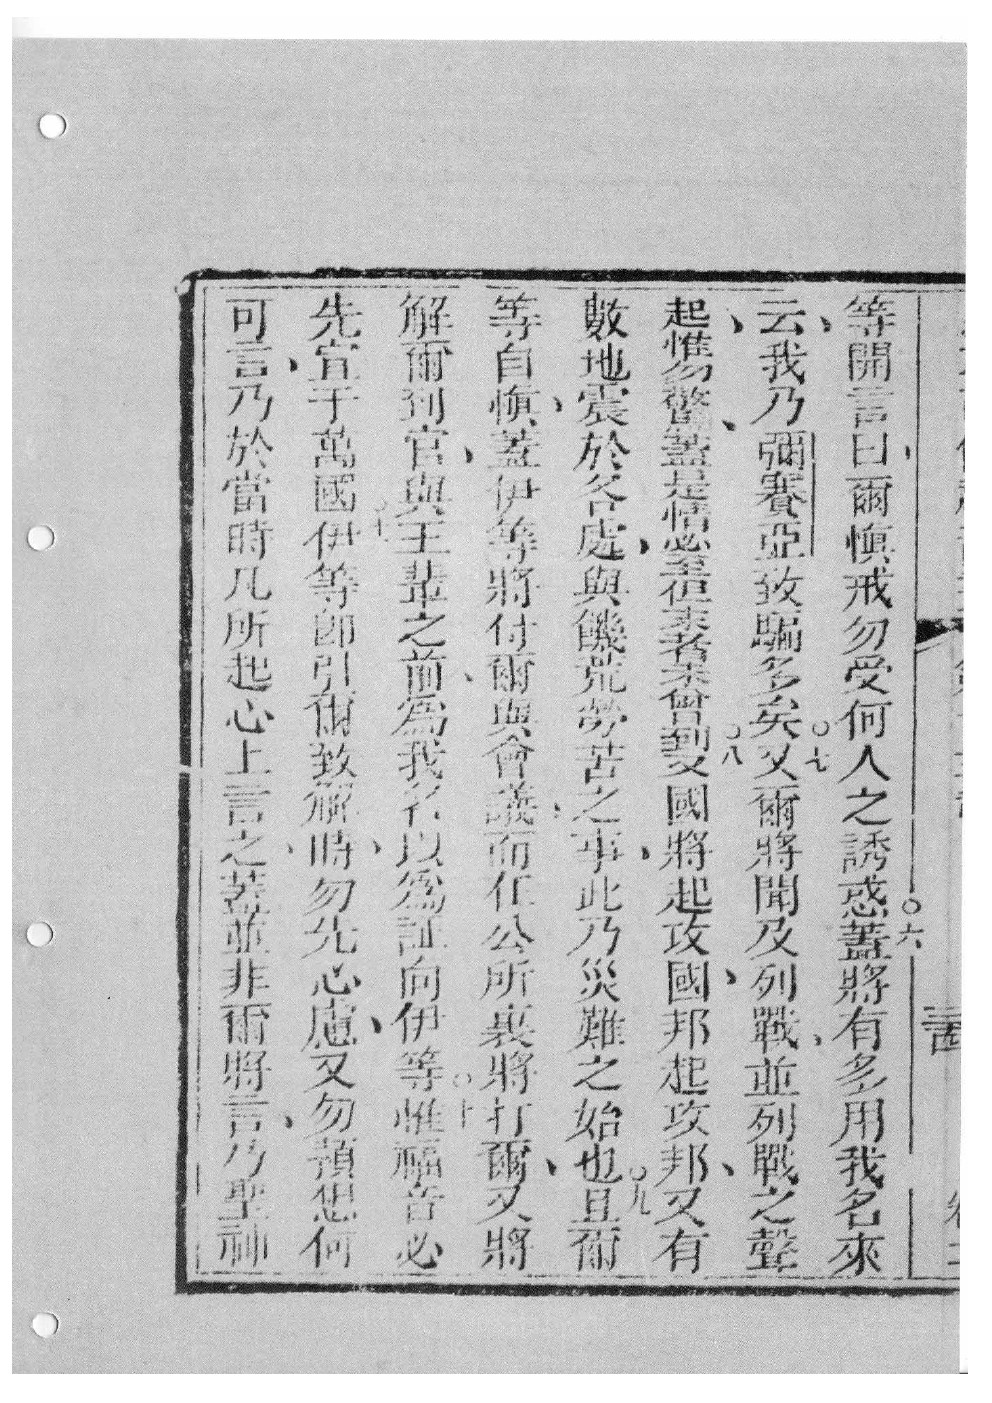 等開言曰爾慎戒勿受何人之誘惑蓋將有多用我名來
六
云我乃彌賽亞致騙多矣又爾將聞及列戰並列戰之聲
七
起惟勿驚蓋是情必至但末者未曾到又國將起攻國邦起攻邦又有
八
數地震於各處與饑荒勞苦之事此乃災難之始也且爾
九
等自慎蓋伊等將付爾與會議而在公所裏將打爾又將
解爾到官與王輩之前為我名以為証向伊等惟福音必
十
先宜于萬國伊等即引爾致解時勿先心慮又勿預想何
十一
可言乃於當時凡所起心上言之蓋並非爾將言乃聖神